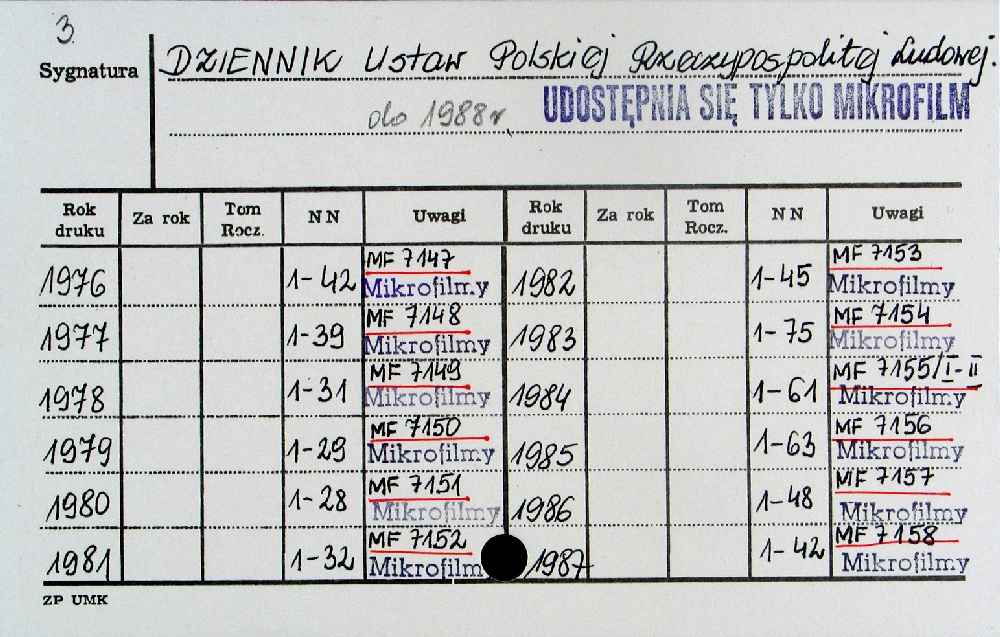 3.
Sygnatura DZIENNIK Ustaw Polskiej Rzeczypospolitej Ludowej.
do 1988 r. UDOSTĘPNIA SIĘ TYLKO MIKROFILM
Rok druku Za rok Tom Rocz. NN Uwagi Rok druku Za rok Tom Rocz. NN Uwagi
1976 1-42 MF 7147 Mikrofilmy 1982 1-45 MF 7153 Mikrofilmy
1977 1-39 MF 7148 Mikrofilmy 1983 1-75 MF 7154 Mikrofilmy
1978 1-31 MF 7149 Mikrofilmy 1984 1-61 MF 7155/I-II Mikrofilmy
1979 1-29 MF 7150 Mikrofilmy 1985 1-63 MF 7156 Mikrofilmy
1980 1-28 MF 7151 Mikrofilmy 1986 1-48 MF 7157 Mikrofilmy
1981 1-32 MF 7152 Mikrofilmy 1987 1-42 MF 7158 Mikrofilmy
ZP UMK